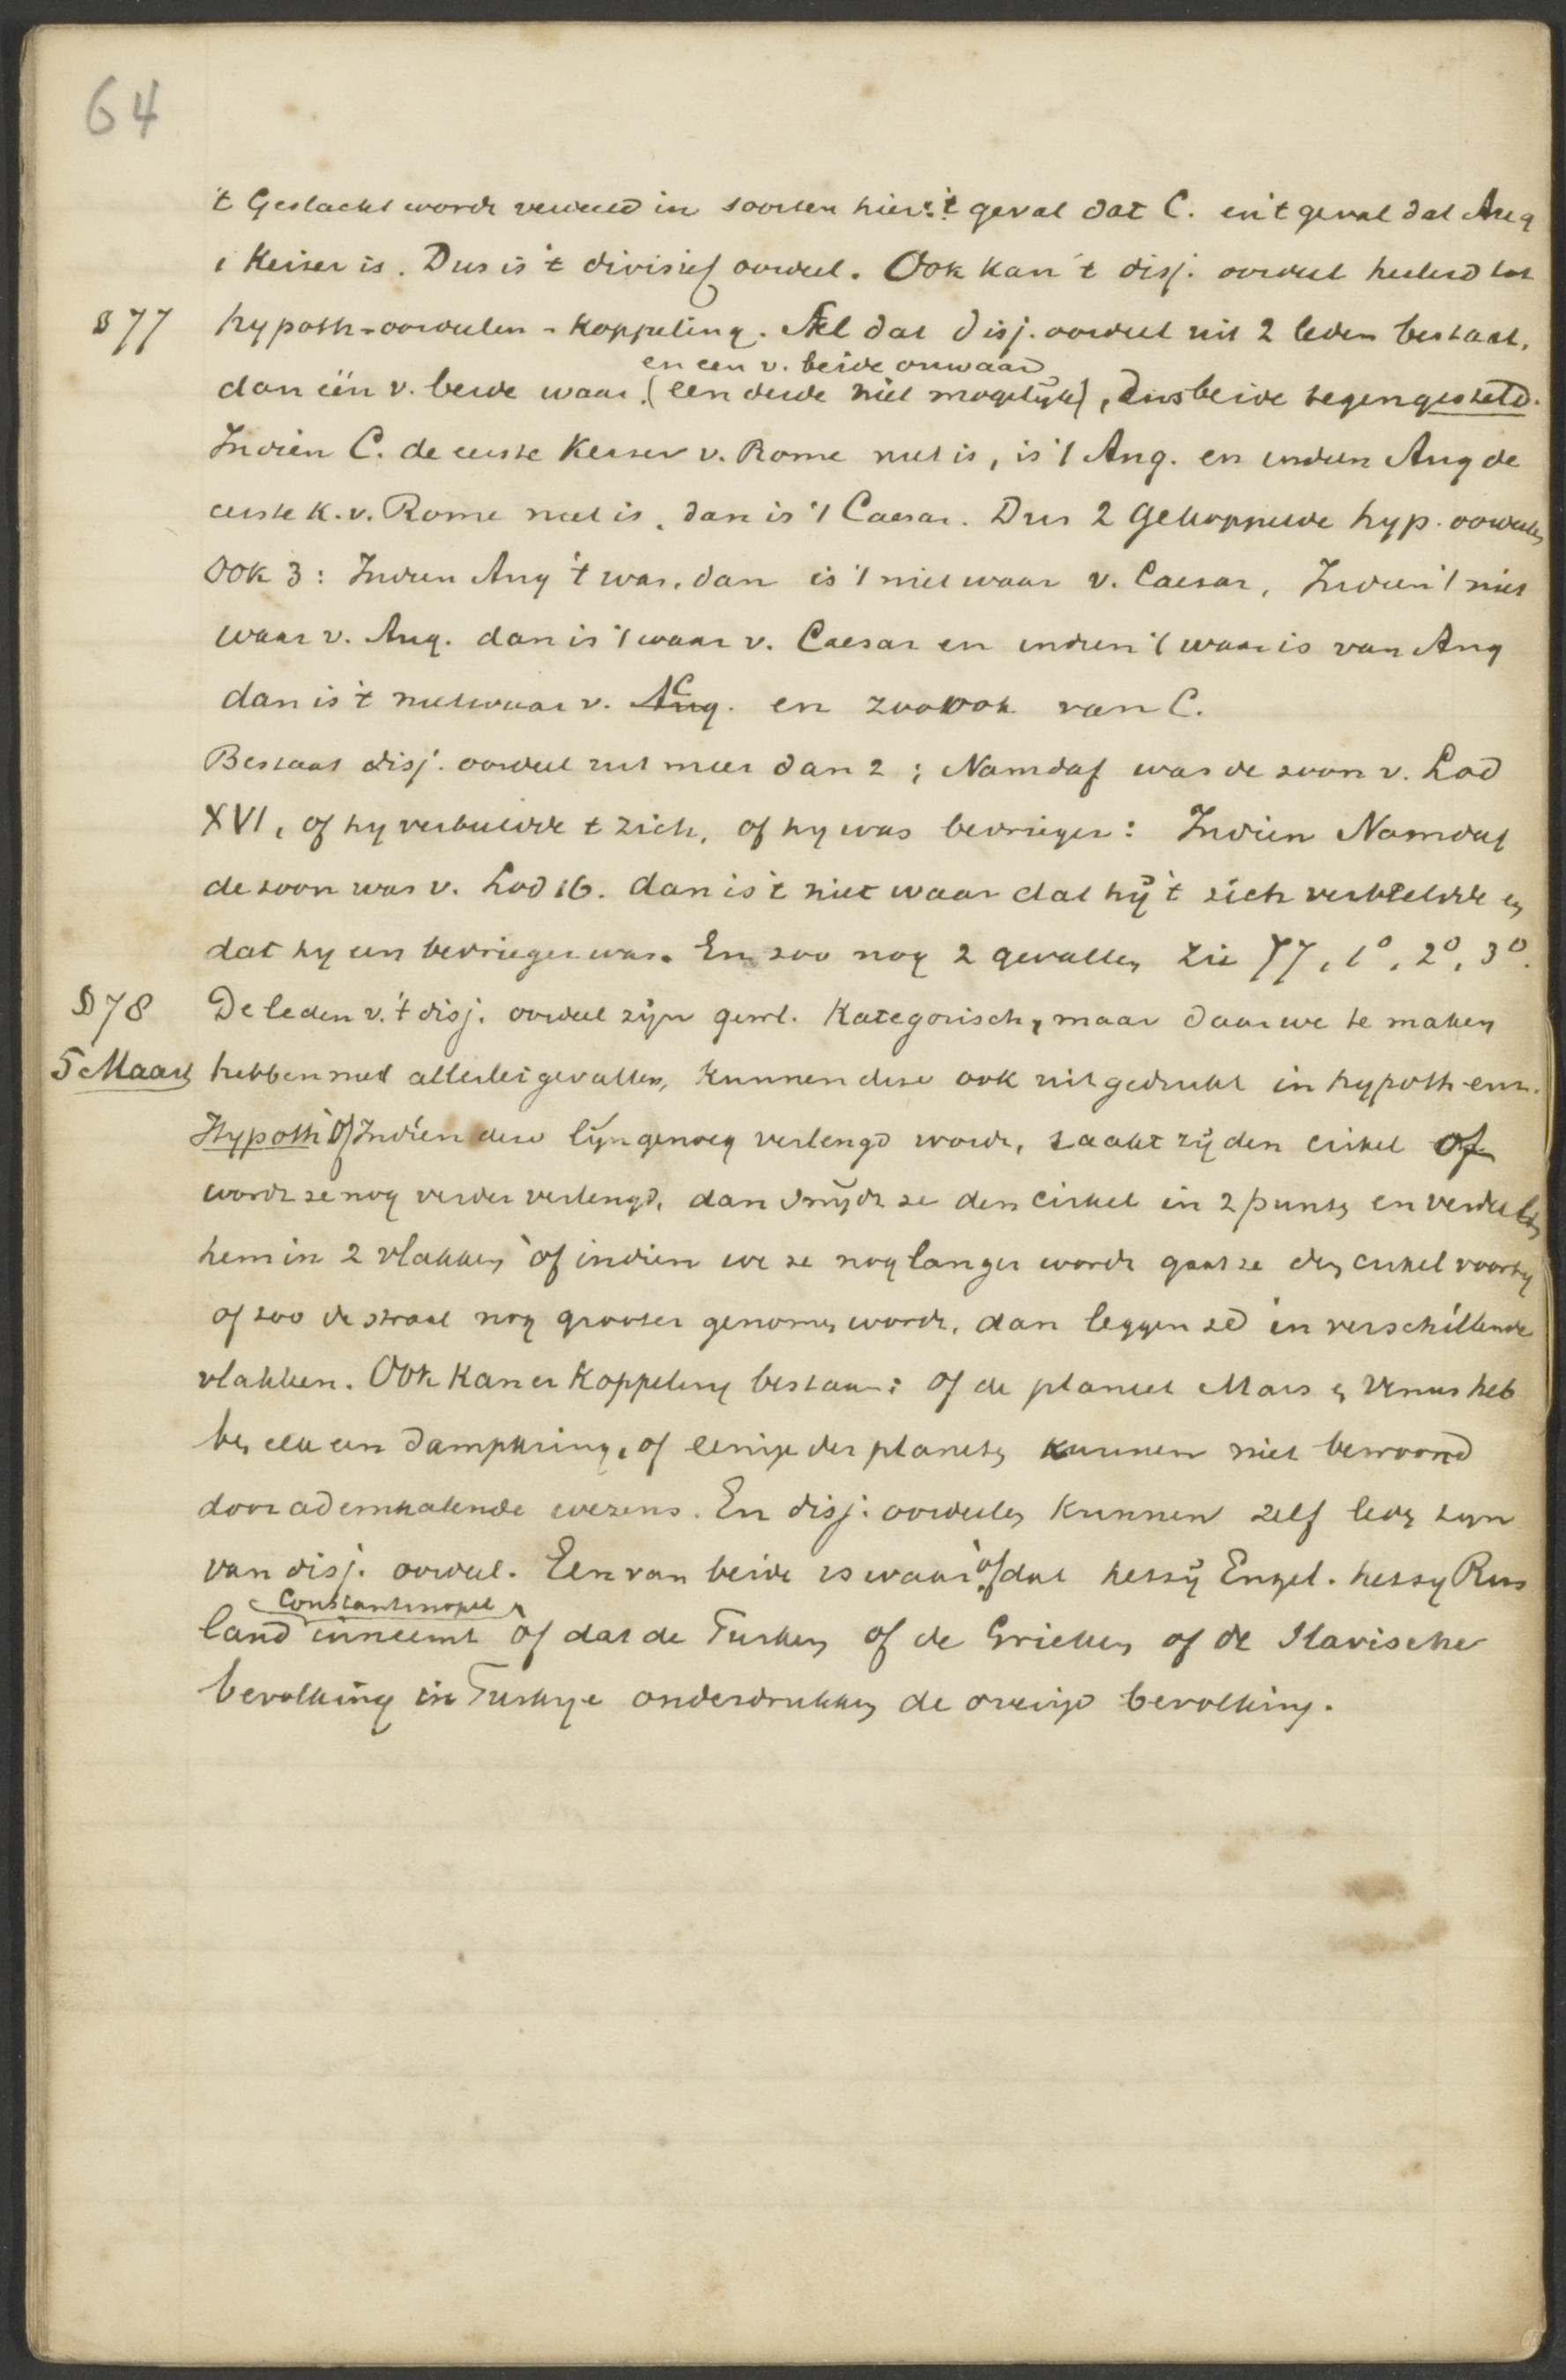 64
't Geslacht wordt verdeeld in soorten hier: 't geval dat C. en 't geval dat Aug
1 Keiser is. Dus is 't divisief oordeel. Ook kan 't disj. oordeel herleid tot
§ 77 hypoth-oordeelen-koppeling. Stel dat disj. oordeel uit 2 leden bestaat,
en een v. beide onwaar
dan één v. beide waar (een derde niet mogelijk), dus beide tegengesteld.
Indien C. de eerste Keiser v. Rome niet is, is 't Aug. en indien Aug de
eerste K. v. Rome niet is, dan is 't Caesar. Dus 2 gekoppelde hyp. oordeelen
Ook 3: Indien Aug 't was, dan is 't niet waar v. Caesar, Indien 't niet
waar v. Aug. dan is 't waar v. Caesar en indien 't waar is van Aug
dan is 't niet waar v. Aug. C en zoo ook van C.
Bestaat disj. oordeel uit meer dan 2; Namdaf was de zoon v. Lod
XVI, of hy verbeeldde t zich, of hy was bedrieger: Indien Namdaf
de zoon was v. Lod 16. dan is 't niet waar dat hij 't zich verbeeldde en
dat hy een bedrieger was. En zoo nog 2 gevallen zie 77, 1º, 2º, 3º.
§ 78 De leden v. 't disj. oordeel zijn gewl. Kategorisch, maar daar we te maken
5 Maart hebben met allerlei gevallen, kunnen deze ook uitgedrukt in hypoth-enz.
Hypoth: Of Indien deze lijn genoeg verlengd wordt, raakt zij den cirkel of
wordt ze nog verder verlengd, dan snijdt ze den cirkel in 2 punten en verdeelt
hem in 2 vlakken of indien we ze nog langer wordt gaat ze den cirkel voorby
of zoo de straal nog grooter genomen wordt, dan leggen ze in verschillende
vlakken. Ook kan er Koppeling bestaan: of de planeet Mars en Venus heb
ben elk een dampkring, of eenige der planeten kunnen niet bewoond
door ademhalende wezens. En disj. oordeelen kunnen zelf leden zyn
van disj. oordeel. Een van beide is waar of dat hetzij Engel. hetzy Rus
Constantinopel
land inneemt of dat de Turken of de Grieken of de Slavische
bevolking in Turkye onderdrukken de overige bevolking.